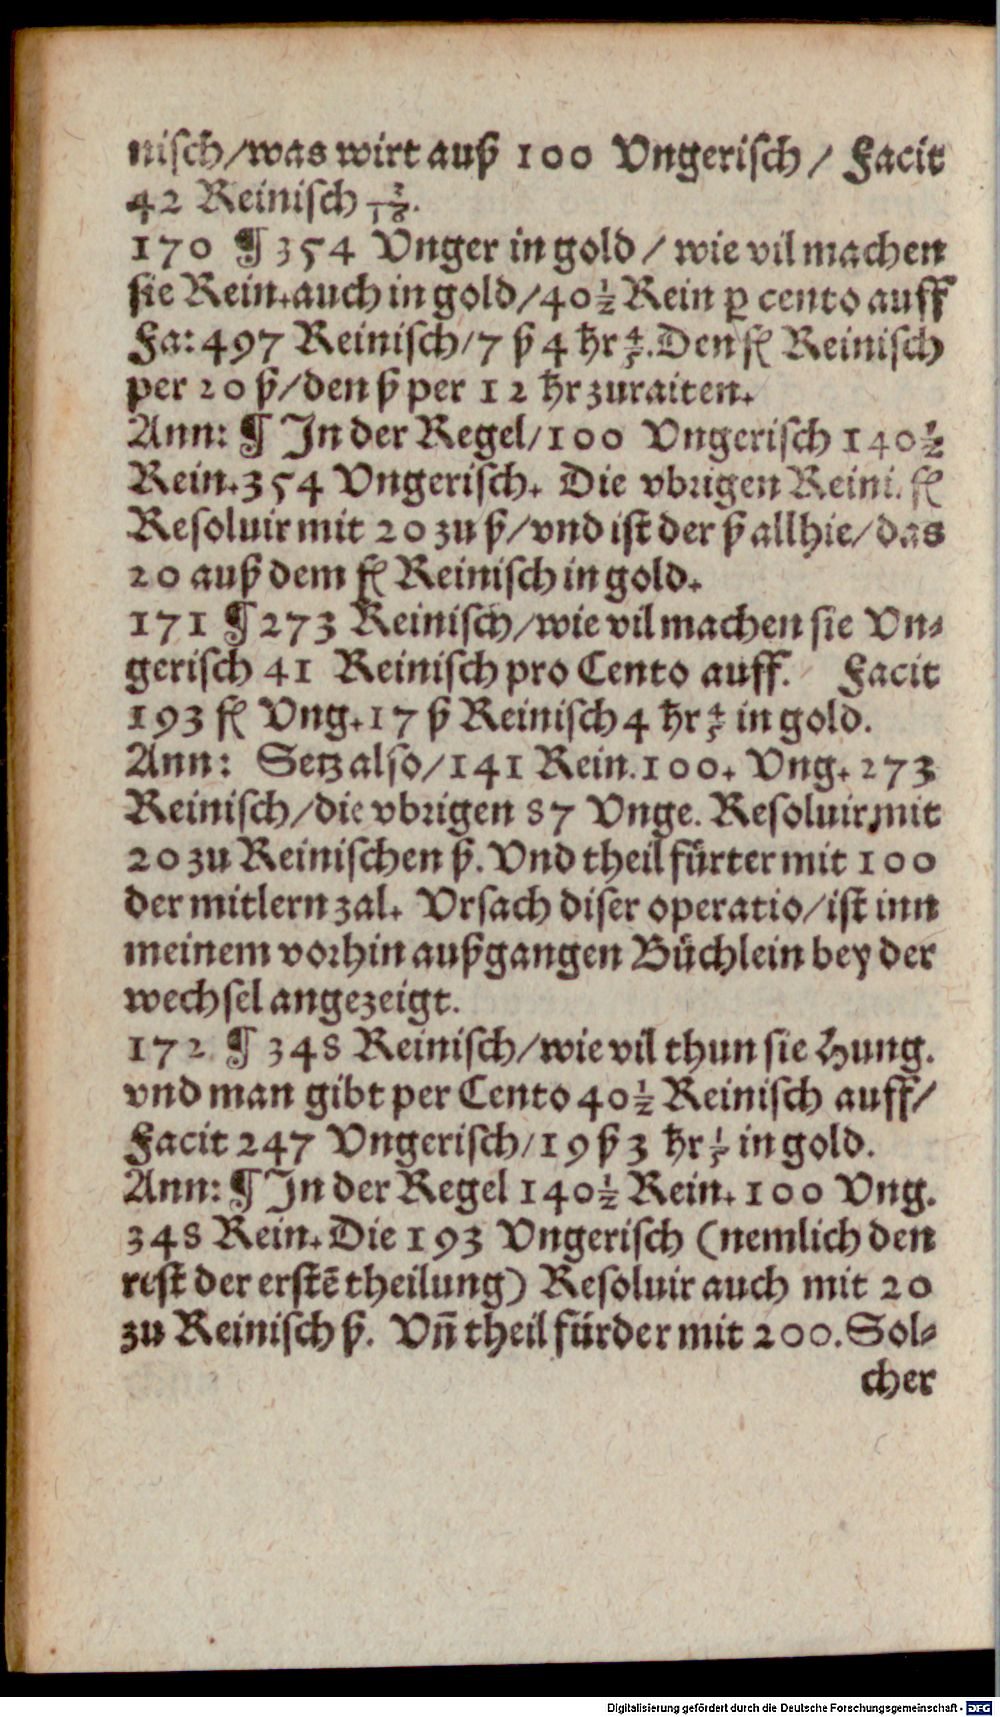 nisch/was wirt auß 100 Vngerisch / Facit
42 Reinisch 7/18.
170 ¶ 354 Vnger in gold / wie vil machen
sie Rein. auch in gold/40½ Rein ꝑ cento auff
Fa: 497 Reinisch/7 ß 4 hr 4/5. Den fl Reinisch
per 20 ß/den ß per 12 hr zuraiten.
Ann: ¶ In der Regel/100 Vngerisch 140½
Rein. 354 Vngerisch. Die vbrigen Reini. fl
Resoluir mit 20 zu ß/vnd ist der ß allhie/das
20 auß dem fl Reinisch in gold.
171 ¶ 273 Reinisch/wie vil machen sie Vn⸗
gerisch 41 Reinisch pro Cento auff. Facit
193 fl Vng. 17 ß Reinisch 4 hr 4/5 in gold.
Ann: Setz also/141 Rein. 100. Vng. 273
Reinisch/die vbrigen 87 Vnge. Resoluir mit
20 zu Reinischen ß. Vnd theil fürter mit 100
der mitlern zal. Vrsach diser operatio/ist inn
meinem vorhin außgangen Büchlein bey der
wechsel angezeigt.
172 ¶ 348 Reinisch/wie vil thun sie Hung.
vnd man gibt per Cento 40½ Reinisch auff/
Facit 247 Vngerisch/19 ß 3 hr 1/5 in gold.
Ann: ¶ In der Regel 140½ Rein. 100 Vng.
348 Rein. Die 193 Vngerisch (nemlich den
rest der erstē theilung) Resoluir auch mit 20
zu Reinisch ß. Vn̄ theil fürder mit 200. Sol⸗
cher
Digitalisierung gefördert durch die Deutsche Forschungsgemeinschaft - DFG